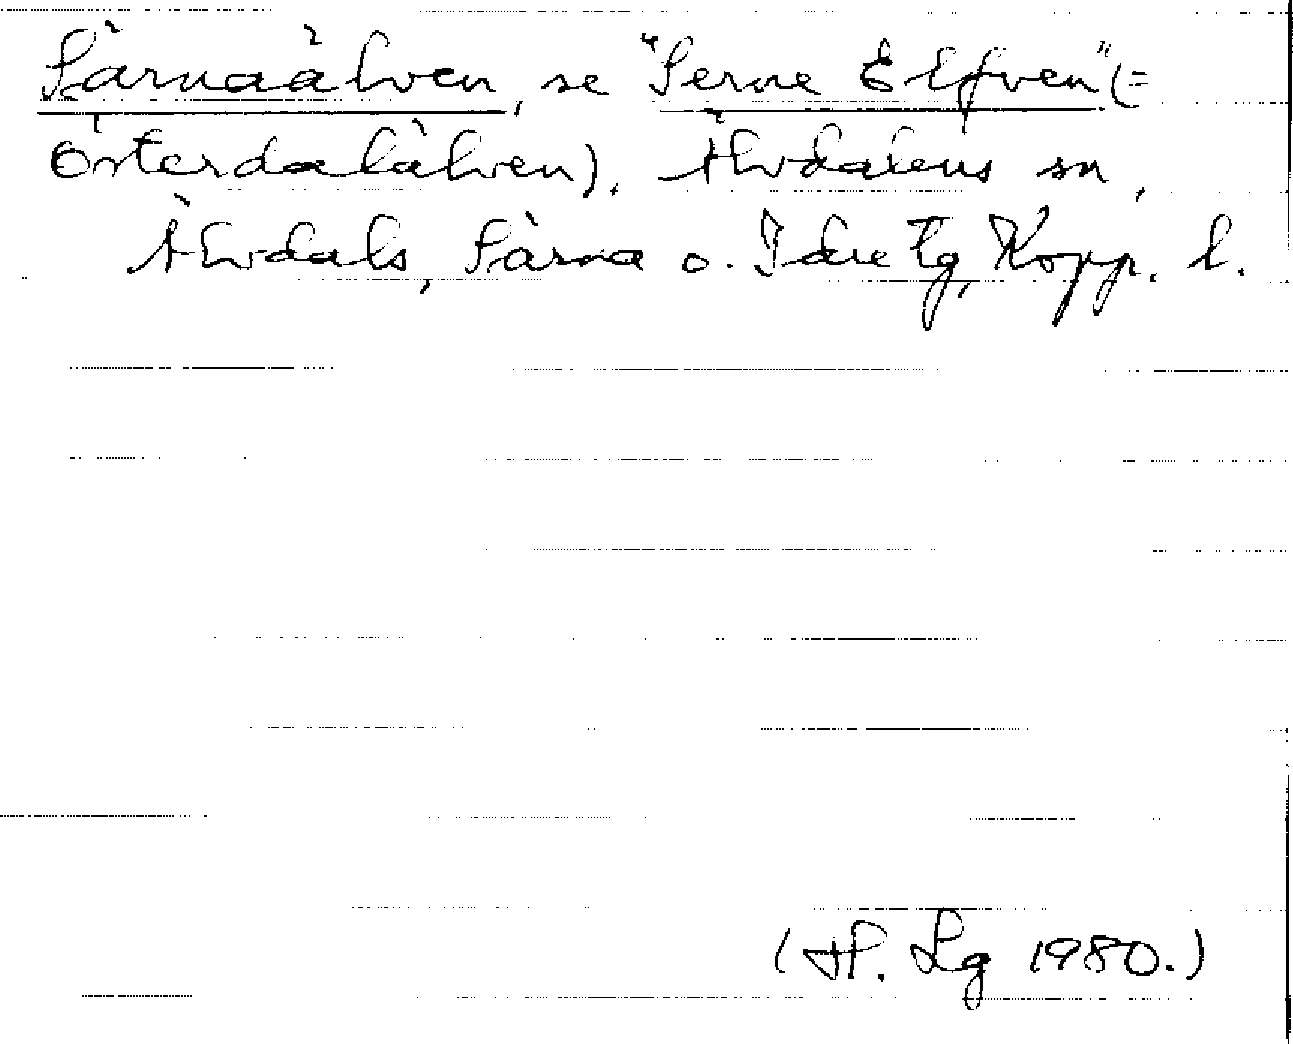 Särnaälven, se "Serne Elfven" (=
Österdalälven), Älvdalens sn,
Älvdals, Särna o. Idre tg, Kopp. l.
(H. Lg 1980.)